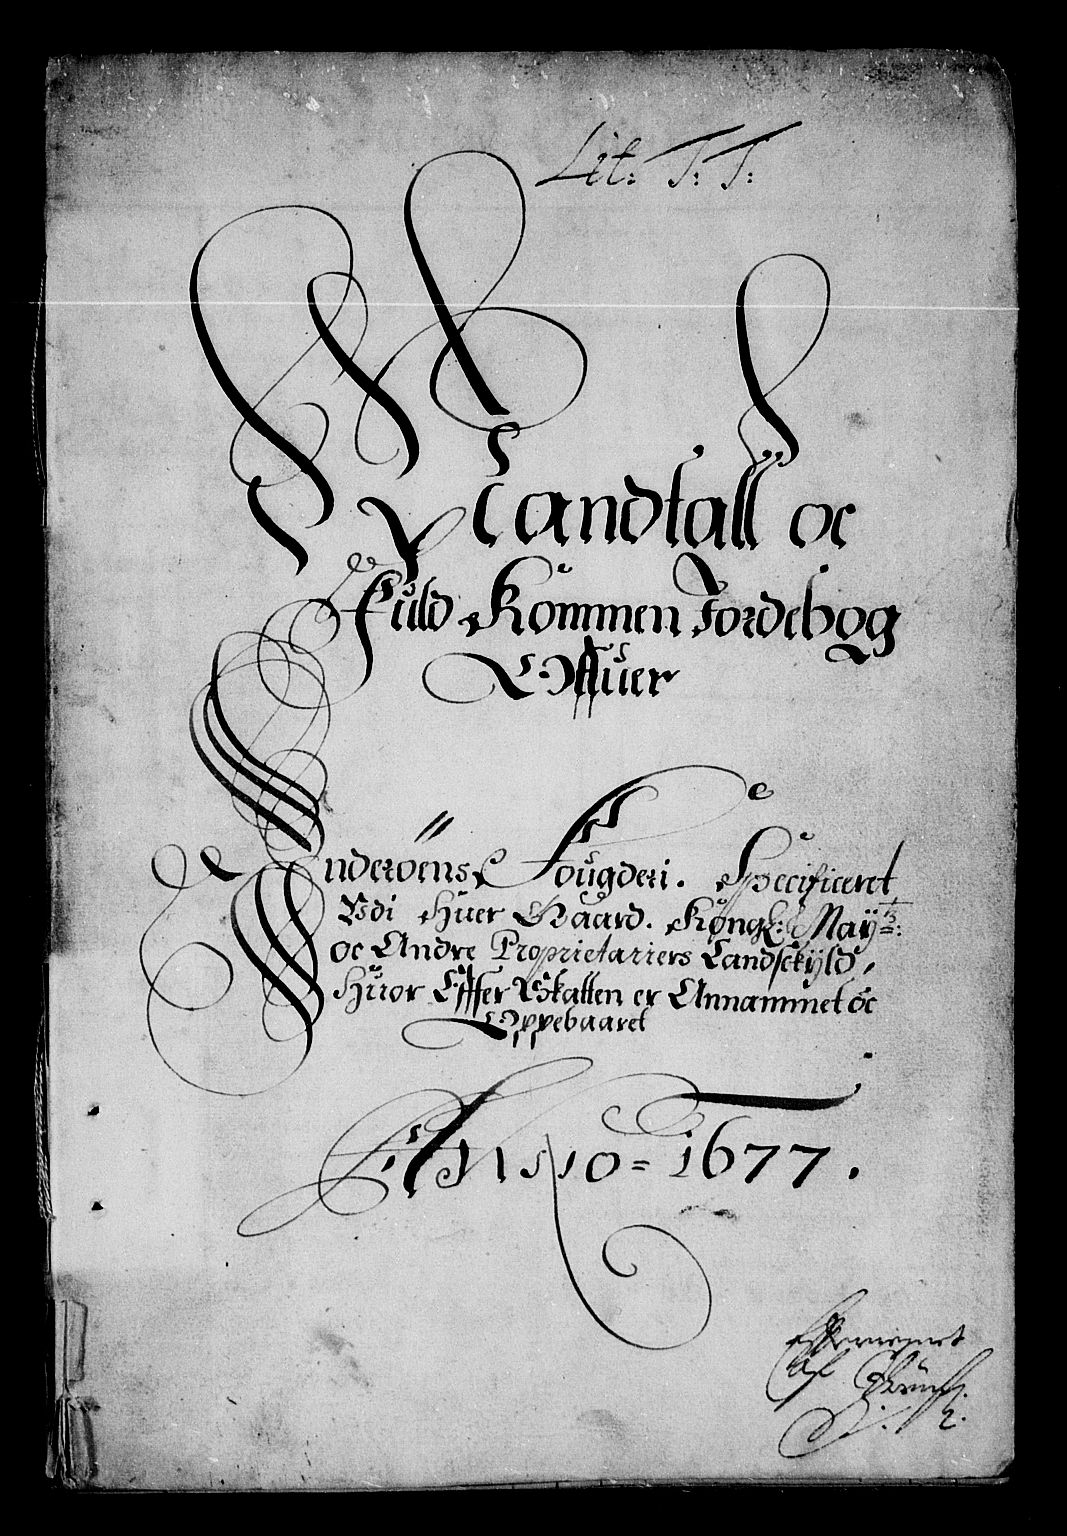 Lit: T: T:
Mandtall oc
Fuld Kommen Jordebog
Offuer
Inderøens Fougderi. Specificeret
Vdi Huer Gaard. Kongl: Maÿtz:
oc Andre Proprietariers Landsckÿld,
Huor Effter Skatten er Annammet oc
Oppebaaret
Anno = 1677.